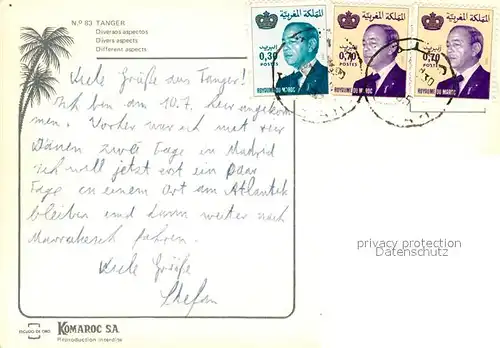 N.º 83 TANGER
Diversos aspectos
Divers aspects
Different aspects
Viele Grüße aus Tanger!
Ich bin am 10.7. hier angekom
men. Vorher war ich mit vier
Dänen zwei Tage in Madrid
Ich will jetzt erst ein paar
Tage an einem Ort am Atlantik
bleiben und dann weiter nach
Marrakesch fahren.
Viele Grüße
Stefan
المملكة المغربية
البريد
0,30
POSTES
ROYAUME DU MAROC
المملكة المغربية
البريد
0,70
POSTES
ROYAUME DU MAROC
المملكة المغربية
البريد
0,70
POSTES
ROYAUME DU MAROC
privacy protection
Datenschutz
KOMAROC S.A.
Reproduction interdite